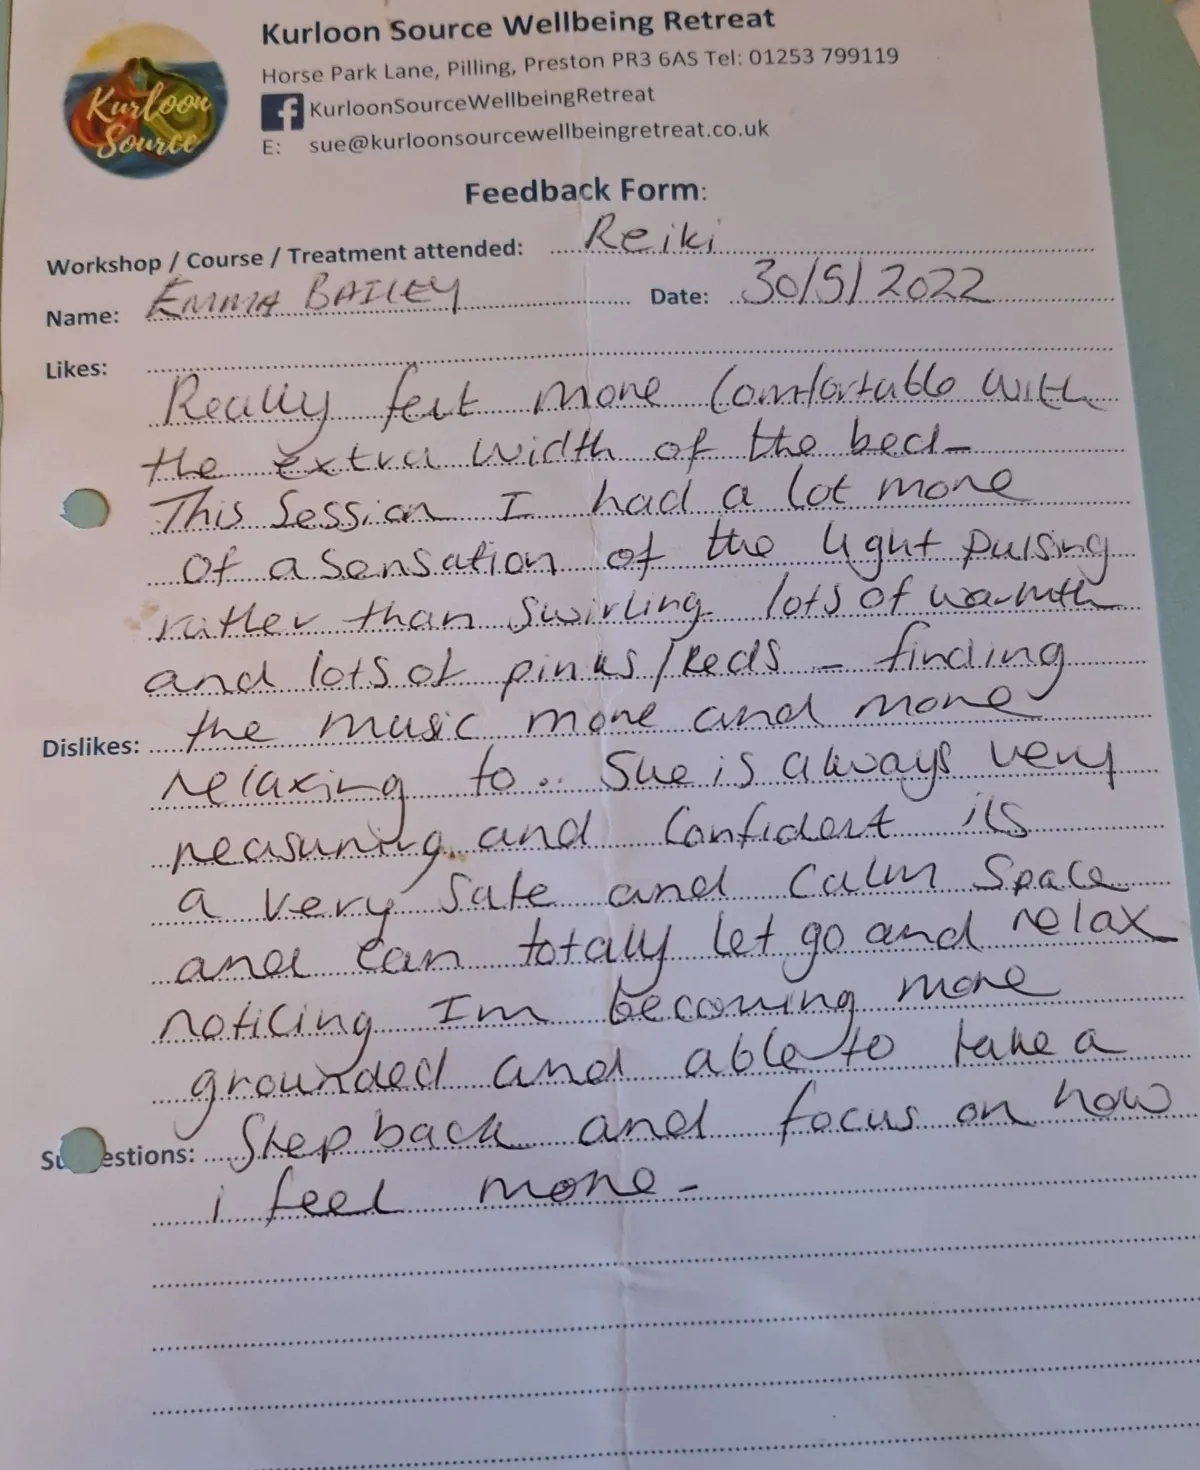 Kurloon Source Wellbeing Retreat
Kurloon
Source
Horse Park Lane, Pilling, Preston PR3 6AS Tel: 01253 799119
f KurloonSourceWellbeingRetreat
E: sue@kurloonsourcewellbeingretreat.co.uk
Feedback Form:
Workshop / Course / Treatment attended: Reiki
Name: EMMA BAILEY Date: 30/5/2022
Likes:
Really felt more comfortable with
the extra width of the bed-
This Session I had a lot more
of a sensation of the light pulsing
rather than swirling. lots of warmth
and lots of pinks/Reds - finding
Dislikes: the music more and more
relaxing to.. Sue is always very
reasuring and confident its
a very safe and calm space
and can totally let go and relax
noticing Im becoming more
grounded and able to take a
Su estions: Step back and focus on how
i feel more-